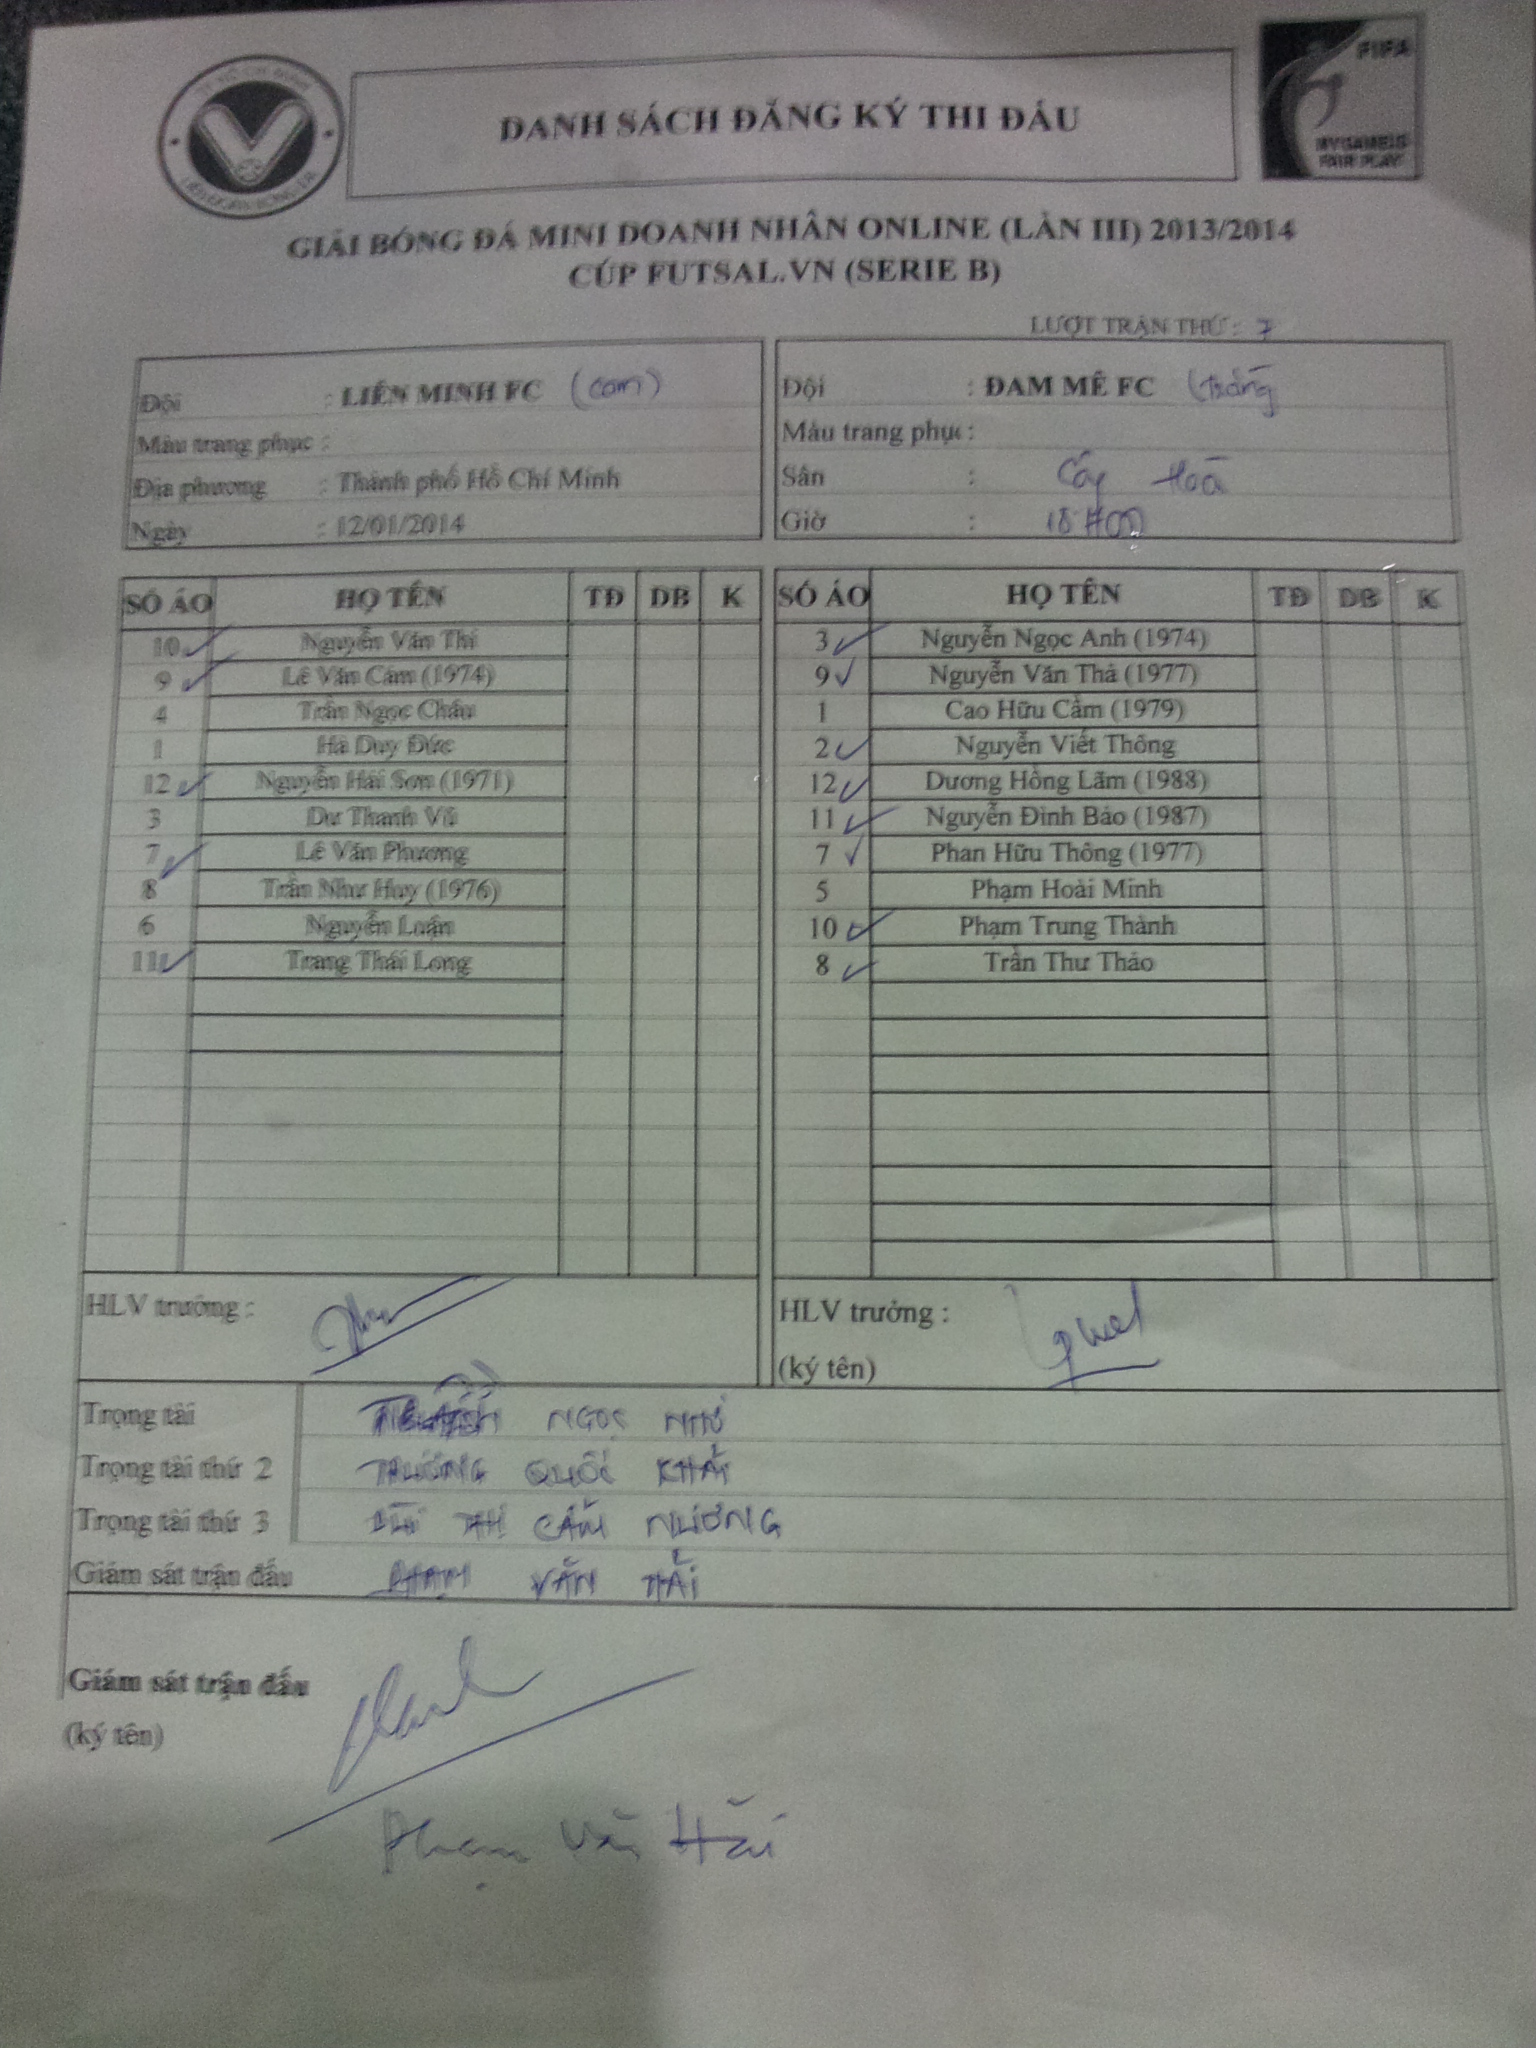 DANH SÁCH ĐĂNG KÝ THI ĐẤU
FIFA
MY GAME IS
FAIR PLAY
GIẢI BÓNG ĐÁ MINI DOANH NHÂN ONLINE (LẦN III) 2013/2014
CÚP FUTSAL.VN (SERIE B)
LƯỢT TRẬN THỨ : 7
Đội : LIÊN MINH FC (cam)
Màu trang phục :
Địa phương : Thành phố Hồ Chí Minh
Ngày : 12/01/2014
Đội : ĐAM MÊ FC (trắng
Màu trang phục :
Sân : Hoà
Giờ : 18H00
SỐ ÁO HỌ TÊN TĐ DB K
10 Nguyễn Văn Thi
9 Lê Văn Cảm (1974)
4 Trần Ngọc Châu
1 Hà Duy Đức
12 Nguyễn Hải Sơn (1971)
3 Dư Thanh Vũ
7 Lê Văn Phương
8 Trần Như Huy (1976)
6 Nguyễn Luận
11 Trang Thái Long
SỐ ÁO HỌ TÊN TĐ DB K
3 Nguyễn Ngọc Anh (1974)
9 Nguyễn Văn Thả (1977)
1 Cao Hữu Cầm (1979)
2 Nguyễn Viết Thông
12 Dương Hồng Lãm (1988)
11 Nguyễn Đình Bảo (1987)
7 Phan Hữu Thông (1977)
5 Phạm Hoài Minh
10 Phạm Trung Thành
8 Trần Thư Thảo
HLV trưởng :
HLV trưởng :
(ký tên)
Trọng tài NGỌC NHƠ
Trọng tài thứ 2 TRƯƠNG QUỐC KHẢI
Trọng tài thứ 3 BÙI THỊ CẨM NƯƠNG
Giám sát trận đấu PHẠM VĂN HẢI
Giám sát trận đấu
(ký tên)
Phạm Văn Hải